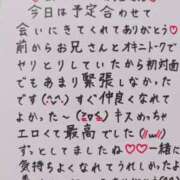 今日は予定合わせて
会いにきてくれてありがとう♡
前からお兄さんとオキニトークで
やりとりしていたから初対面
でもあまり緊張しなかった
です(^^)すぐ仲良くなれて
よかった~ キスめっちゃ
エロくて最高でした(//ω//)
ずっとしてましたね♡♡一緒に
気持ちよくなれてうれしかったよ